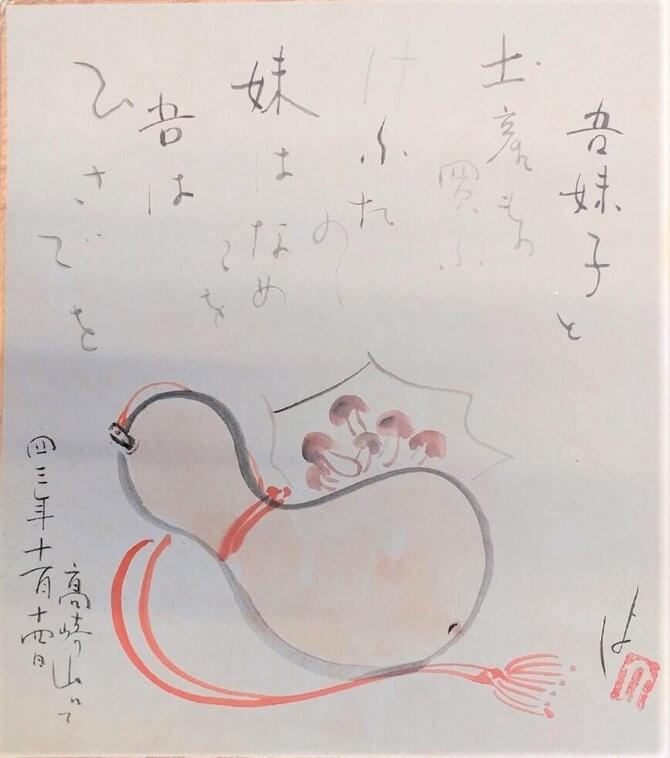 吾妹子と
土産もの
買ふ
けふた
のし
妹はなめ
こを
吾は
ひさごを
高崎山にて
四三年十一月十四日